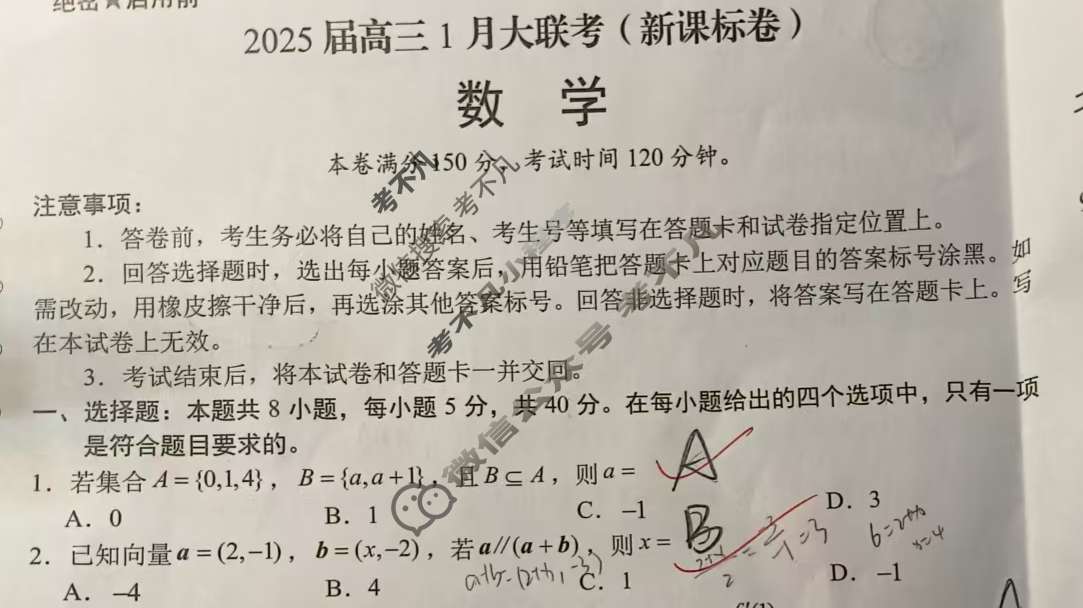 绝密★启用前
2025届高三1月大联考（新课标卷）
数 学
本卷满分150分，考试时间120分钟。
注意事项：
1．答卷前，考生务必将自己的姓名、考生号等填写在答题卡和试卷指定位置上。
2．回答选择题时，选出每小题答案后，用铅笔把答题卡上对应题目的答案标号涂黑。如
需改动，用橡皮擦干净后，再选涂其他答案标号。回答非选择题时，将答案写在答题卡上。写
在本试卷上无效。
3．考试结束后，将本试卷和答题卡一并交回。
一、选择题：本题共8小题，每小题5分，共40分。在每小题给出的四个选项中，只有一项
是符合题目要求的。
1．若集合A={0,1,4}，B={a,a+1}，且B⊆A，则a= A
A．0 B．1 C．-1 D．3
2．已知向量a=(2,-1)，b=(x,-2)，若a//(a+b)，则x= B
6=2+x
x=4
a+b=(2+x,-3)
A．-4 B．4 C．1 D．-1
考不凡
微信搜索 考不凡
考不凡小程序
微信公众号 考不凡